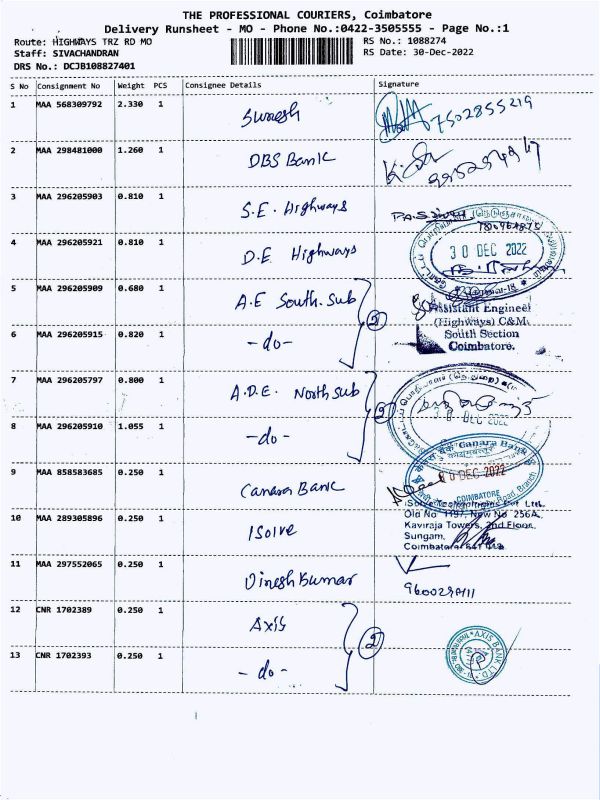 THE PROFESSIONAL COURIERS, Coimbatore
Delivery Runsheet - MO - Phone No.:0422-3505555 - Page No.:1
Route: HIGHWAYS TRZ RD MO
RS No.: 1088274
Staff: SIVACHANDRAN
RS Date: 30-Dec-2022
DRS No.: DCJB108827401
S No Consignment No Weight PCS Consignee Details Signature
1 MAA 568309792 2.330 1 Suresh 7502855219
2 MAA 298481000 1.260 1 DBS Bank
3 MAA 296205903 0.810 1 S.E. Highways
4 MAA 296205921 0.810 1 D.E Highways
30 DEC 2022
5 MAA 296205909 0.680 1 A.E South. Sub
2
Assistant Engineer
(Highways) C&M.
South Section
Coimbatore.
6 MAA 296205915 0.820 1 -do-
7 MAA 296205797 0.800 1 A.D.E. North Sub
2
30 DEC 2022
8 MAA 296205910 1.055 1 -do-
9 MAA 858583685 0.250 1 Canara Bank
Canara Bank
30 DEC 2022
COIMBATORE
Road Branch
10 MAA 289305896 0.250 1 ISolve
Pvt Ltd.
Old No 1197, New No 256A,
Kaviraja Towers, 2nd Floor,
Sungam,
Coimbatore
11 MAA 297552065 0.250 1 Dinesh Kumar
12 CNR 1702389 0.250 1 Axis
2
AXIS BANK LTD.
13 CNR 1702393 0.250 1 -do-